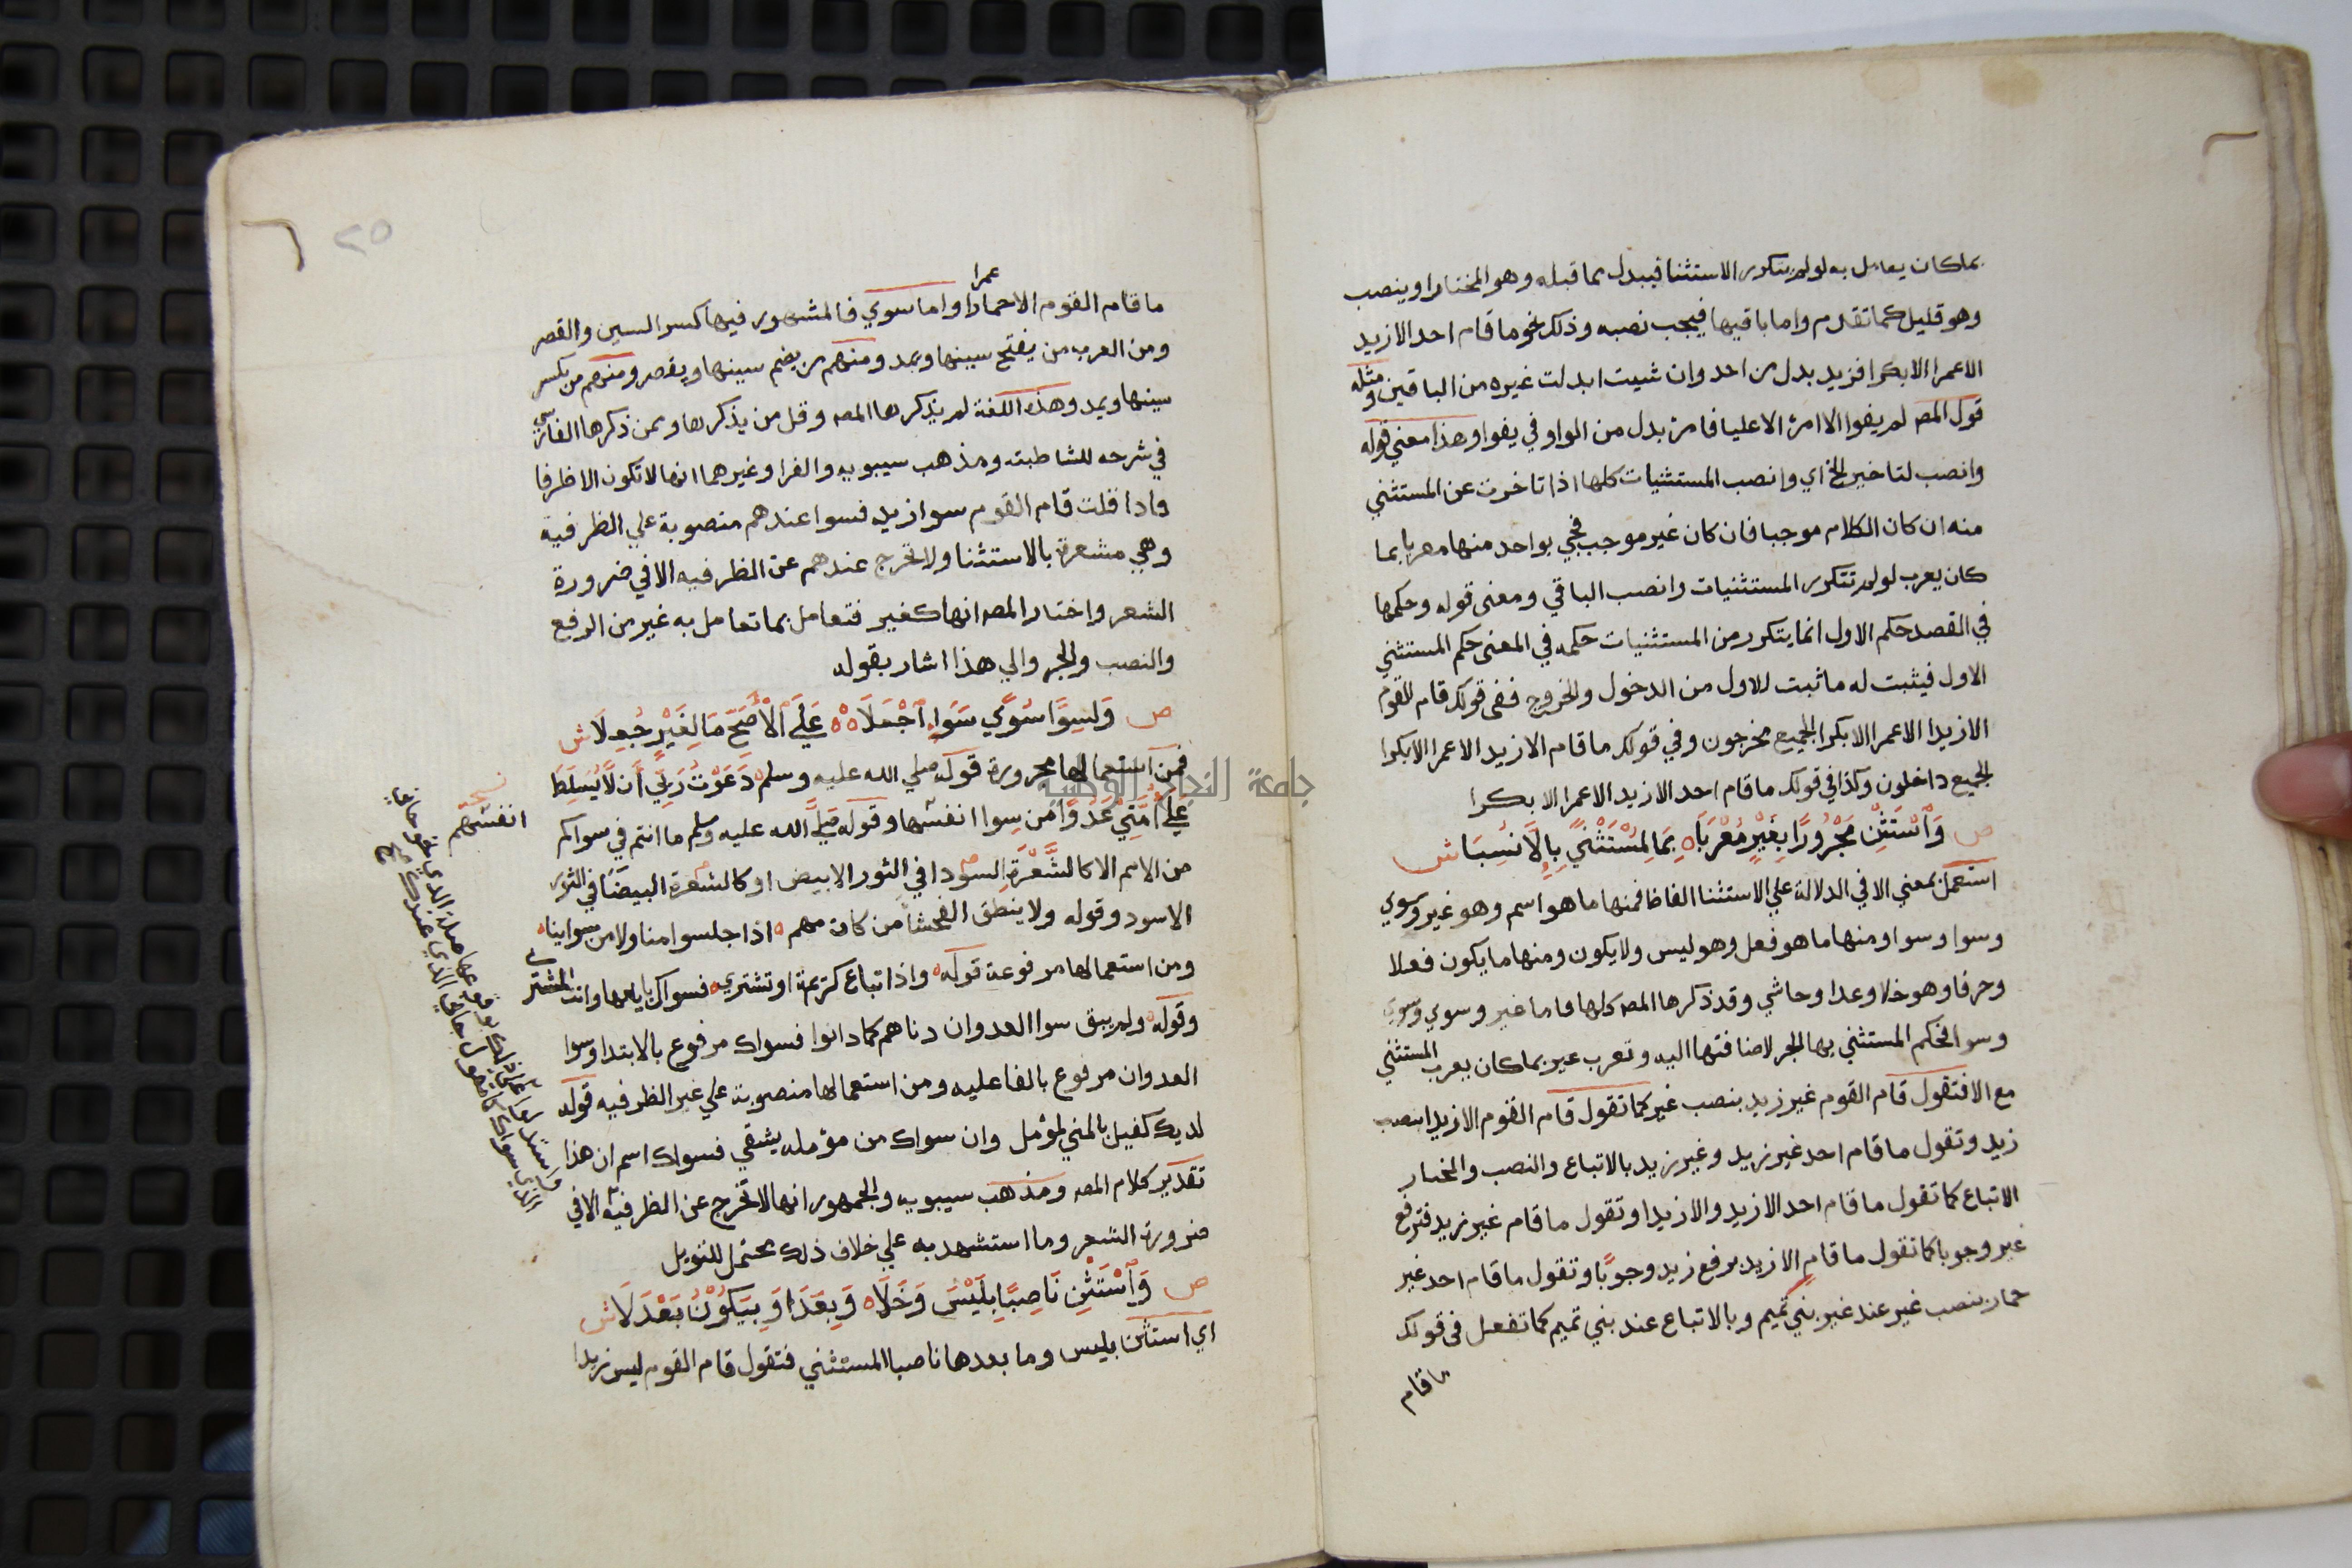 بما كان يعامل به لو لم يتكرر الاستثنا فيبدل مما قبله وهو المختار او ينصب
وهو قليل كما تقدم واما باقيها فيجب نصبه وذلك نحو ما قام احد الا زيد
الا عمرا الا بكرا فزيد بدل من احد وان شيت ابدلت غيره من الباقين ومثله
قول المصـ لم يفوا الا امرؤ الا عليا فامرؤ بدل من الواو في يفوا وهذا معني قوله
وانصب لتاخير الخ اي وانصب المستثنيات كلها اذا تاخرت عن المستثني
منه ان كان الكلام موجبا فان كان غير موجب فجي بواحد منها معربا بما
كان يعرب لو لم تتكرر المستثنيات وانصب الباقي ومعنى قوله وحكمها
في القصد حكم الاول انما يتكرر من المستثنيات حكمه في المعنى حكم المستثني
الاول فيثبت له ما ثبت للاول من الدخول والخروج ففي قولك قام القوم
الا زيدا الا عمرا الا بكرا الجميع مخرجون وفي قولك ما قام الا زيد الا عمرا الا بكرا
الجميع داخلون وكذا في قولك ما قام احد الا زيد الا عمرا الا بكرا
ص وَاْسْتَثْنِ مَجْرُورًا بِغَيْرٍ مُعْرَبَا بِمَا لِمُسْتَثْنًى بِإِلَّا نُسِبَا ش
استعمل بمعني الا في الدلالة علي الاستثنا الفاظ فمنها ما هو اسم وهو غير وسوي
وسوا وسوا ومنها ما هو فعل وهو ليس ولا يكون ومنها ما يكون فعلا
وحرفا وهو خلا وعدا وحاشي وقد ذكرها المصـ كلها فاما غير وسوي وسوي
وسوا فحكم المستثني بها الجر لاضافتها اليه وتعرب غير بما كان يعرب المستثني
مع الا فتقول قام القوم غير زيد بنصب غير كما تقول قام القوم الا زيدا بنصب
زيد وتقول ما قام احد غير زيد وغير زيد بالاتباع والنصب والمختار
الاتباع كما تقول ما قام احد الا زيد والا زيدا وتقول ما قام غير زيد فترفع
غير وجوبا كما تقول ما قام الا زيد برفع زيد وجوبًا وتقول ما قام احد غير
حمار بنصب غير عند غير بني تميم وبالاتباع عند بني تميم كما تفعل في قولك
ما قام
٢٥
عمرا
ما قام القوم الا حمارا واما سوي فالمشهور فيها كسر السين والقصر
ومن العرب من يفتح سينها ويمد ومنهم من يضم سينها ويقصر ومنهم من يكسر
سينها ويمد وهذه اللغة لم يذكرها المصـ وقل من يذكرها وممن ذكرها الفاسي
في شرحه للشاطبية ومذهب سيبويه والفرا وغيرهما انها لا تكون الا ظرفا
فاذا قلت قام القوم سوا زيد فسوا عندهم منصوبة علي الظرفية
وهي مشعرة بالاستثنا ولا تخرج عندهم عن الظرفيه الا في ضرورة
الشعر واختار المصـ انها كغير فتعامل بما تعامل به غير من الرفع
والنصب والجر والي هذا اشار بقوله
ص وَلِسِوًى سُوًي سَوَاءٍ اْجْعَلَا عَلَي اْلْأَصَحِّ مَا لِغَيْرٍ جُعِلَا ش
فمن استعمالها مجرورة قوله صلي الله عليه وسلم دَعَوْتُ رَبِّي أَن لَّا يُسَلِّطَ
عَلِي أُمَّتِي عَدُوًّا مِن سِوا انفسها وقوله صَلَّي الله عليه وسلم ما انتم في سواكم
نسخة
انفسهم
من الاسم الا كالشَّعْرَةِ السودا في الثور الابيض او كالشعرة البيضَا في الثور
الاسود وقوله ولا ينطق الفحشا من كان منهم اذا جلسوا منا ولا من سواينا
ومن استعمالها مرفوعة قوله واذا تباع كريمة او تشتري فسواك بايعها وانت المشتري
وقوله ولم يبق سوا العدوان دناهم كما دانوا فسواك مرفوع بالابتدا وسوا
العدوان مرفوع بالفاعليه ومن استعمالها منصوبة علي غير الظرفيه قوله
لديك كفيل بالمني لمؤمل وان سواك من مؤمله يشقي فسواك اسم ان هذا
تقدير كلام المصـ ومذهب سيبويه والجمهور انها لا تخرج عن الظرفيه الا في
ضرورة الشعر وما استشهد به علي خلاف ذلك محتمل للتويل
ص وَاْسْتَثْنِ نَاصِبًا بِلَيْسَ وَخَلَا وَبِعَدَا وَبِيَكُوْنُ بَعْدَ لَا ش
اي استثن بليس وما بعدها ناصبا المستثني فتقول قام القوم ليس زيدا
جامعة النجاح الوطنية